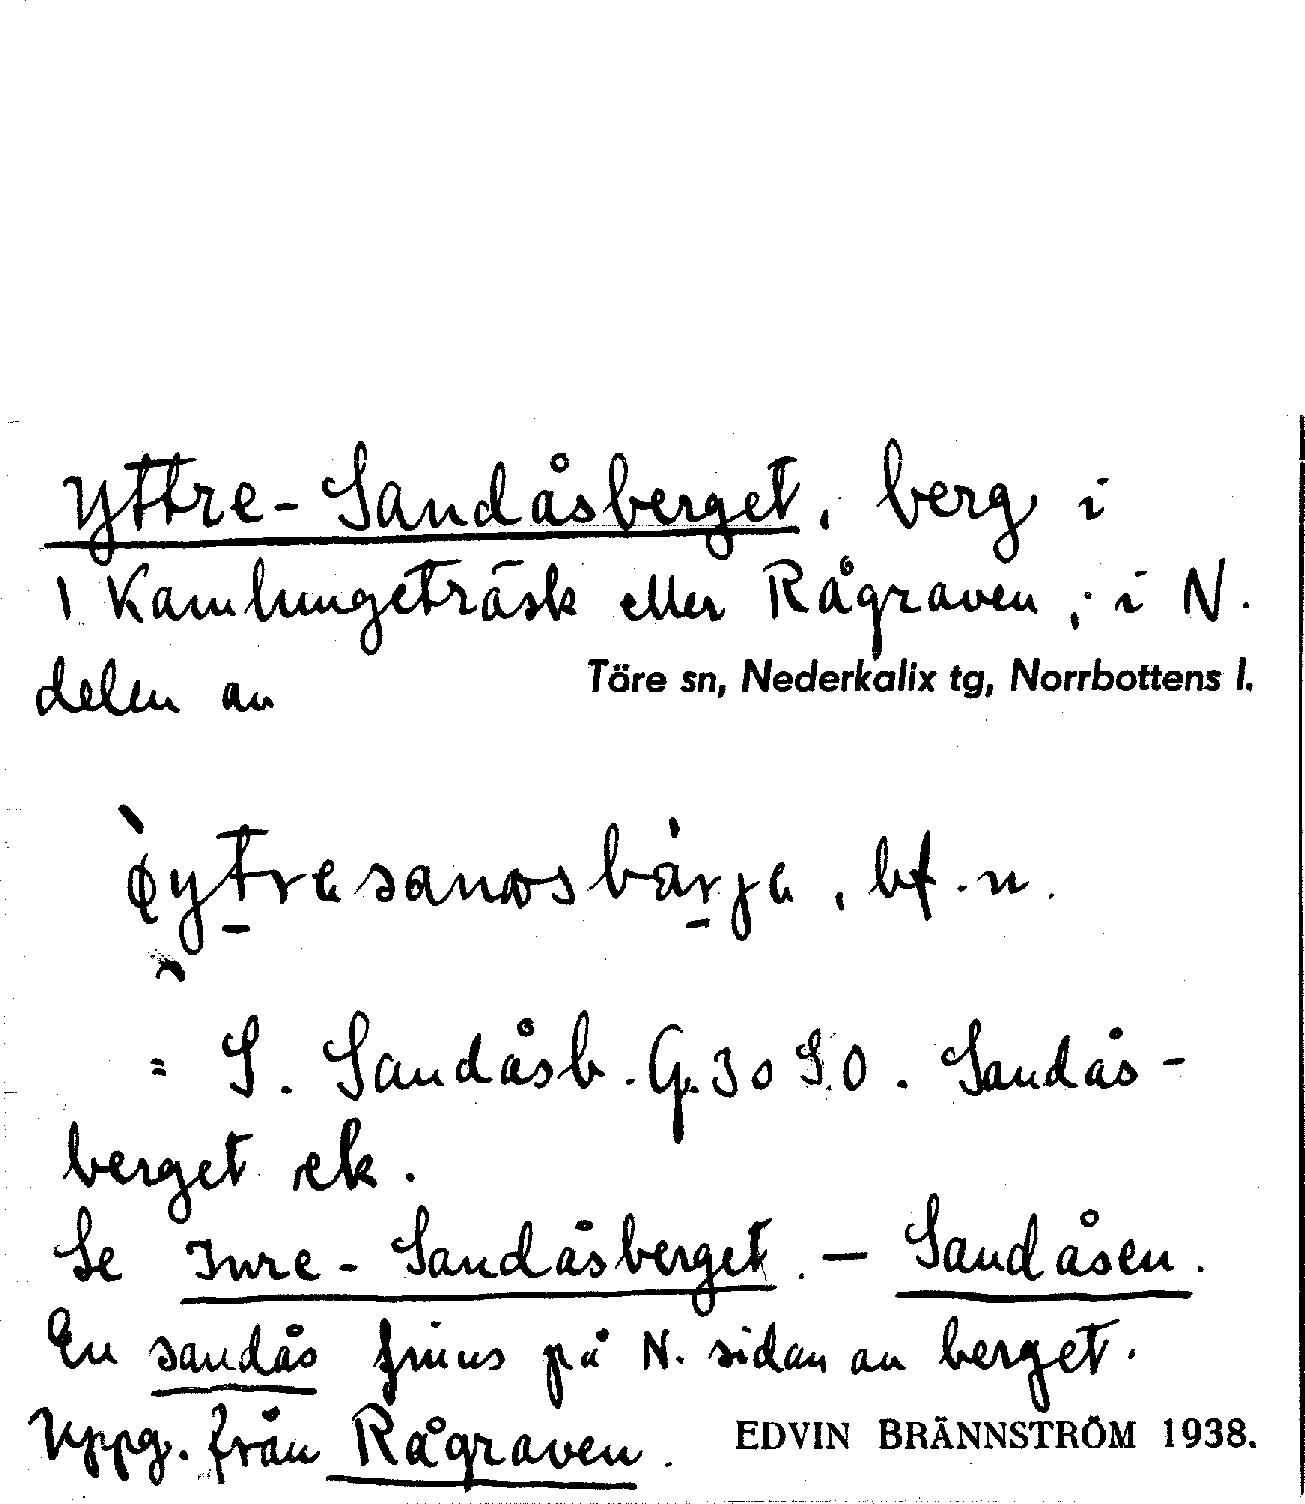 Yttre-Sandåsberget, berg i
1 Kamlungeträsk eller Rågraven, i N.
delen av
Töre sn, Nederkalix tg, Norrbottens l.
bf. n.
= S. Sandåsb. G. 30 S.O. Sandås-
berget ek.
Se Inre-Sandåsberget. — Sandåsen.
En sandås finns på N. sidan av berget.
Uppg. från Rågraven.
EDVIN BRÄNNSTRÖM 1938.